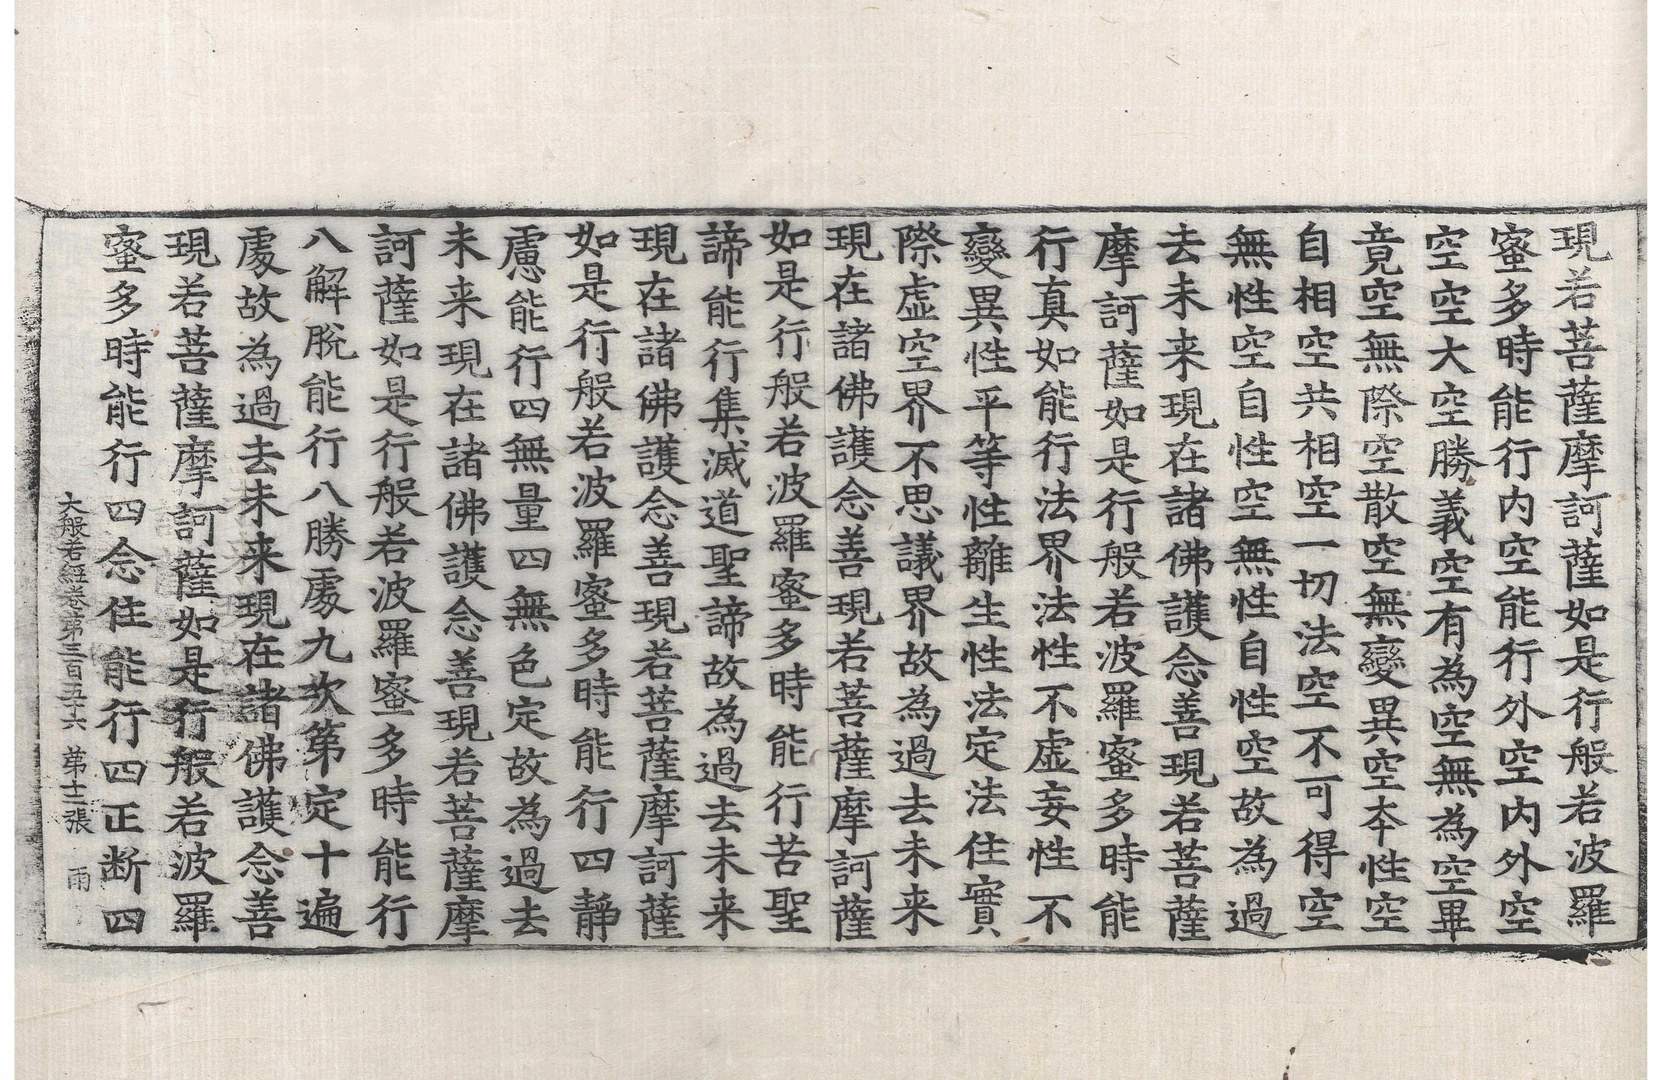 現若菩薩摩訶薩如是行般若波羅
蜜多時能行内空能行外空内外空
空空大空勝義空有為空無為空畢
竟空無際空散空無變異空本性空
自相空共相空一切法空不可得空
無性空自性空無性自性空故為過
去未来現在諸佛護念善現若菩薩
摩訶薩如是行般若波羅蜜多時能
行真如能行法界法性不虚妄性不
變異性平等性離生性法定法住實
際虚空界不思議界故為過去未来
現在諸佛護念善現若菩薩摩訶薩
如是行般若波羅蜜多時能行苦聖
諦能行集滅道聖諦故為過去未来
現在諸佛護念善現若菩薩摩訶薩
如是行般若波羅蜜多時能行四静
慮能行四無量四無色定故為過去
未来現在諸佛護念善現若菩薩摩
訶薩如是行般若波羅蜜多時能行
八解脫能行八勝處九次第定十遍
處故為過去未来現在諸佛護念善
現若菩薩摩訶薩如是行般若波羅
蜜多時能行四念住能行四正断四
大般若經卷第三百五十六 第十二張 雨